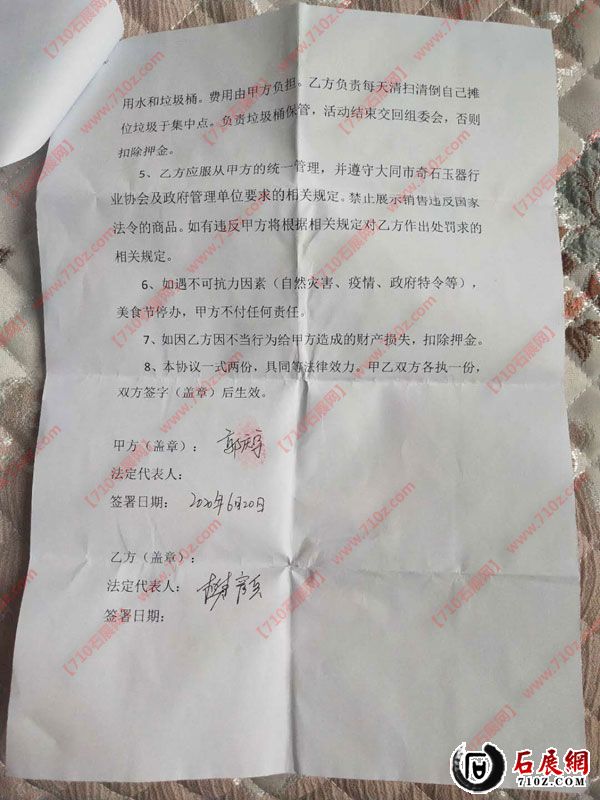 用水和垃圾桶。费用由甲方负担。乙方负责每天清扫清倒自己摊
位垃圾于集中点。负责垃圾桶保管，活动结束交回组委会，否则
扣除押金。
5、乙方应服从甲方的统一管理，并遵守大同市奇石玉器行
业协会及政府管理单位要求的相关规定。禁止展示销售违反国家
法令的商品。如有违反甲方将根据相关规定对乙方作出处罚求的
相关规定。
6、如遇不可抗力因素（自然灾害、疫情、政府特令等），
美食节停办，甲方不付任何责任。
7、如因乙方因不当行为给甲方造成的财产损失，扣除押金。
8、本协议一式两份，具同等法律效力。甲乙双方各执一份，
双方签字（盖章）后生效。
甲方（盖章）：
法定代表人：
签署日期： 2020年6月20日
乙方（盖章）：
法定代表人：
签署日期：
【710石展网】www.710z.com
石展網
710Z.COM